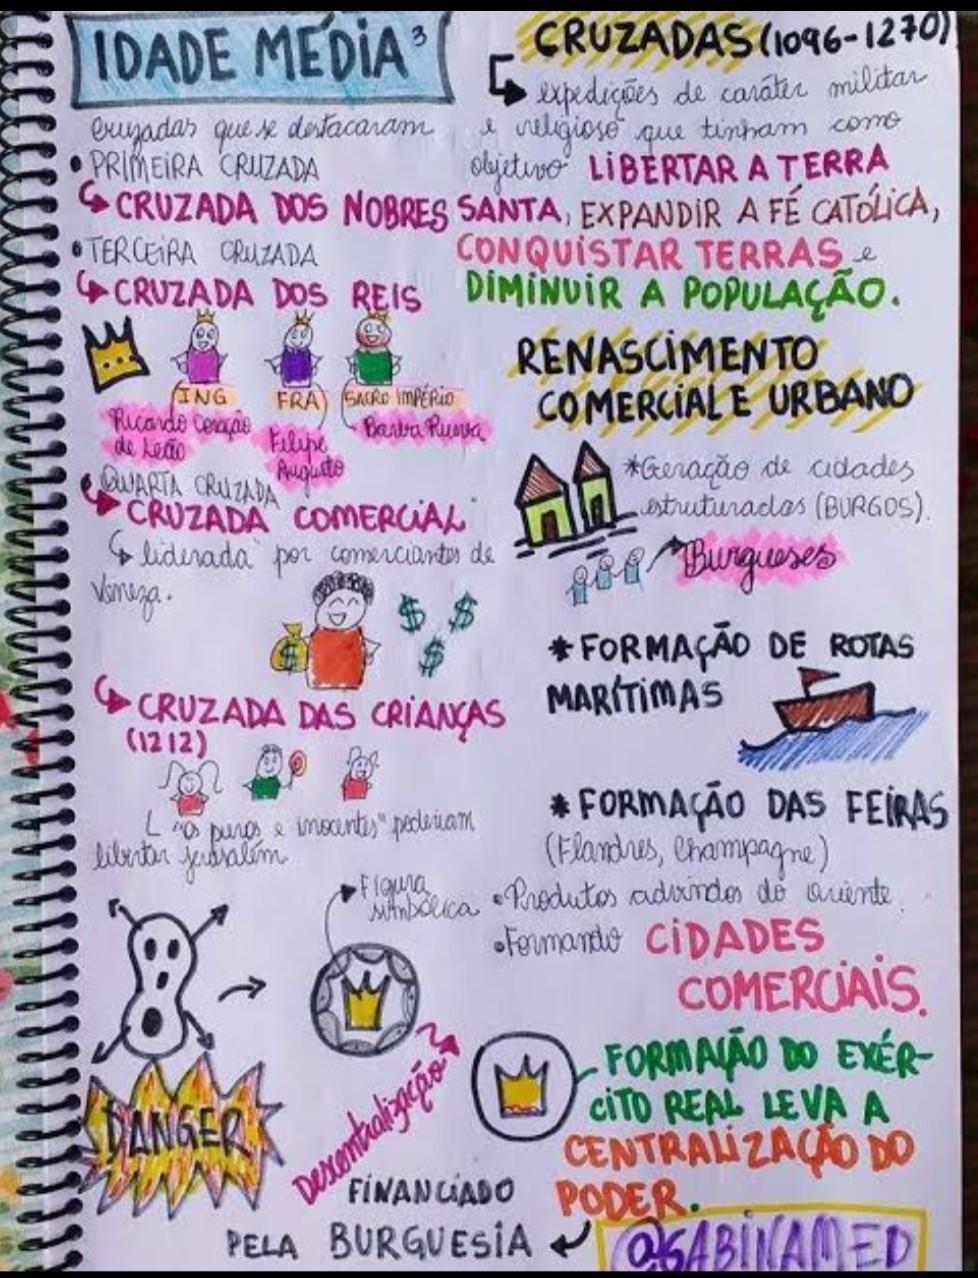 IDADE MÉDIA ³
cruzadas que se destacaram
• PRIMEIRA CRUZADA
CRUZADA DOS NOBRES
• TERCEIRA CRUZADA
CRUZADA DOS REIS
ING
FRA
SACRO IMPÉRIO
Ricardo Coração
de Leão
Filipe
Augusto
Barba Ruiva
• QUARTA CRUZADA
CRUZADA COMERCIAL
"liderada" por comerciantes de
Veneza.
$ $ $
$
CRUZADA DAS CRIANÇAS
(1212)
"os puros e inocentes" poderiam
libertar Jerusalém
Figura
simbólica
DANGER
Descentralização
CRUZADAS (1096-1270)
expedições de caráter militar
e religioso que tinham como
objetivo LIBERTAR A TERRA
SANTA, EXPANDIR A FÉ CATÓLICA,
CONQUISTAR TERRAS e
DIMINUIR A POPULAÇÃO.
RENASCIMENTO
COMERCIAL E URBANO
*Geração de cidades
estruturadas (BURGOS).
Burgueses
* FORMAÇÃO DE ROTAS
MARÍTIMAS
* FORMAÇÃO DAS FEIRAS
(Flandres, Champagne)
• Produtos advindos do oriente.
• Formando CIDADES
COMERCIAIS.
FORMAÇÃO DO EXÉR-
CITO REAL LEVA A
CENTRALIZAÇÃO DO
PODER.
FINANCIADO
PELA BURGUESIA
@SABINAMED